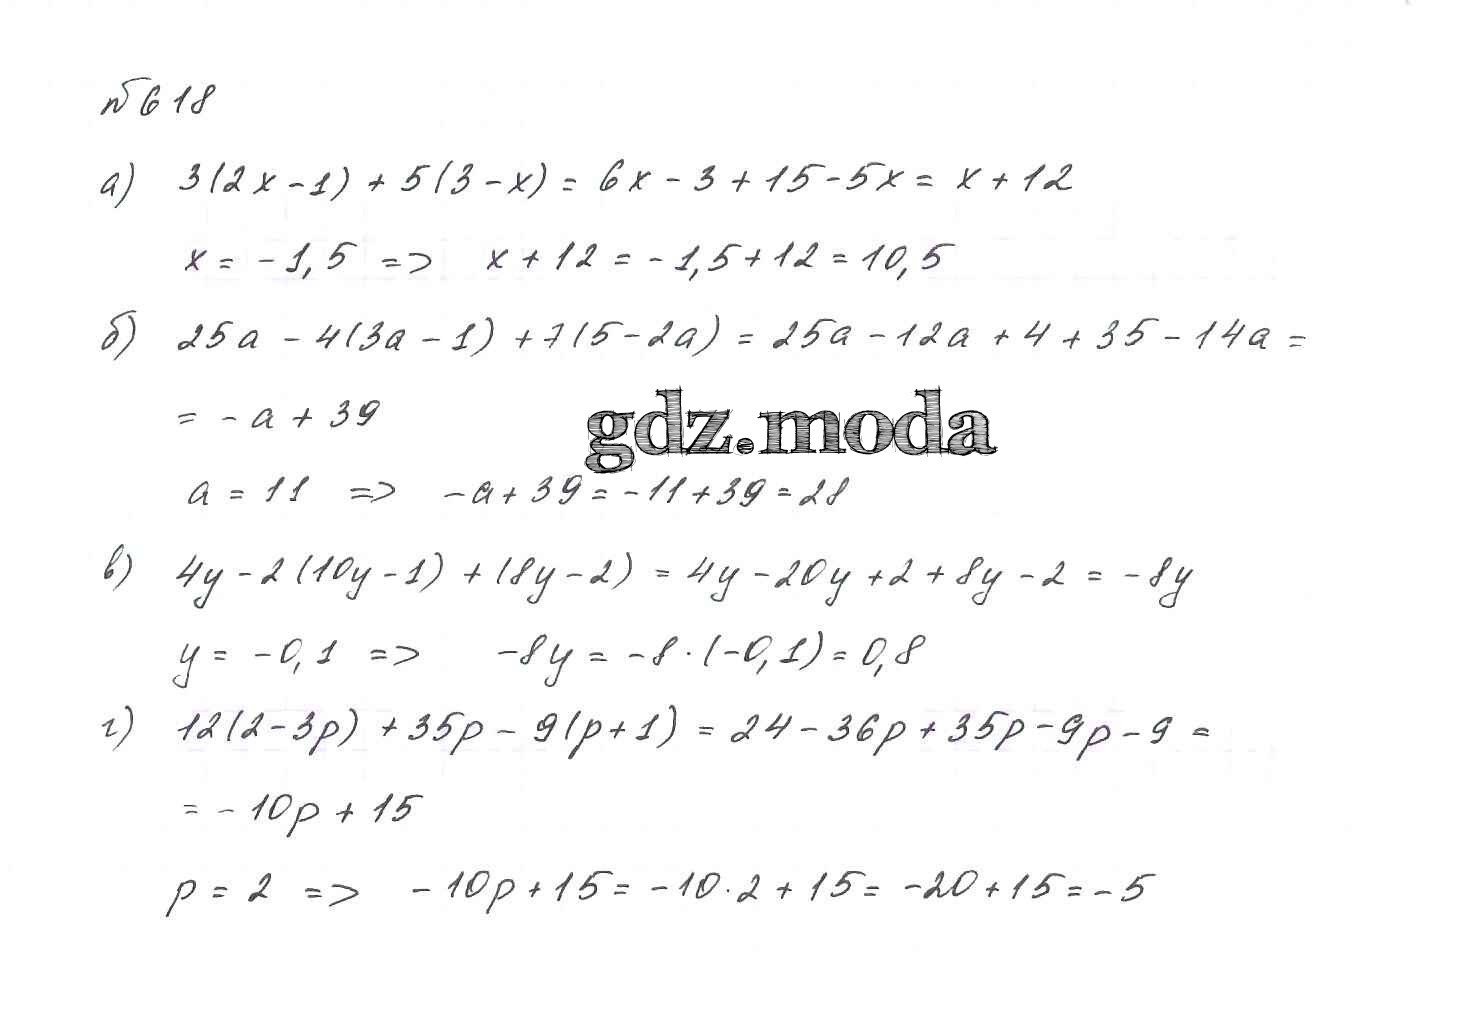 №618
а) 3(2x-1)+5(3-x)=6x-3+15-5x=x+12
x=-1,5 => x+12=-1,5+12=10,5
б) 25a-4(3a-1)+7(5-2a)=25a-12a+4+35-14a=
=-a+39
gdz.moda
a=11 => -a+39=-11+39=28
в) 4y-2(10y-1)+(8y-2)=4y-20y+2+8y-2=-8y
y=-0,1 => -8y=-8·(-0,1)=0,8
г) 12(2-3p)+35p-9(p+1)=24-36p+35p-9p-9=
=-10p+15
p=2 => -10p+15=-10·2+15=-20+15=-5